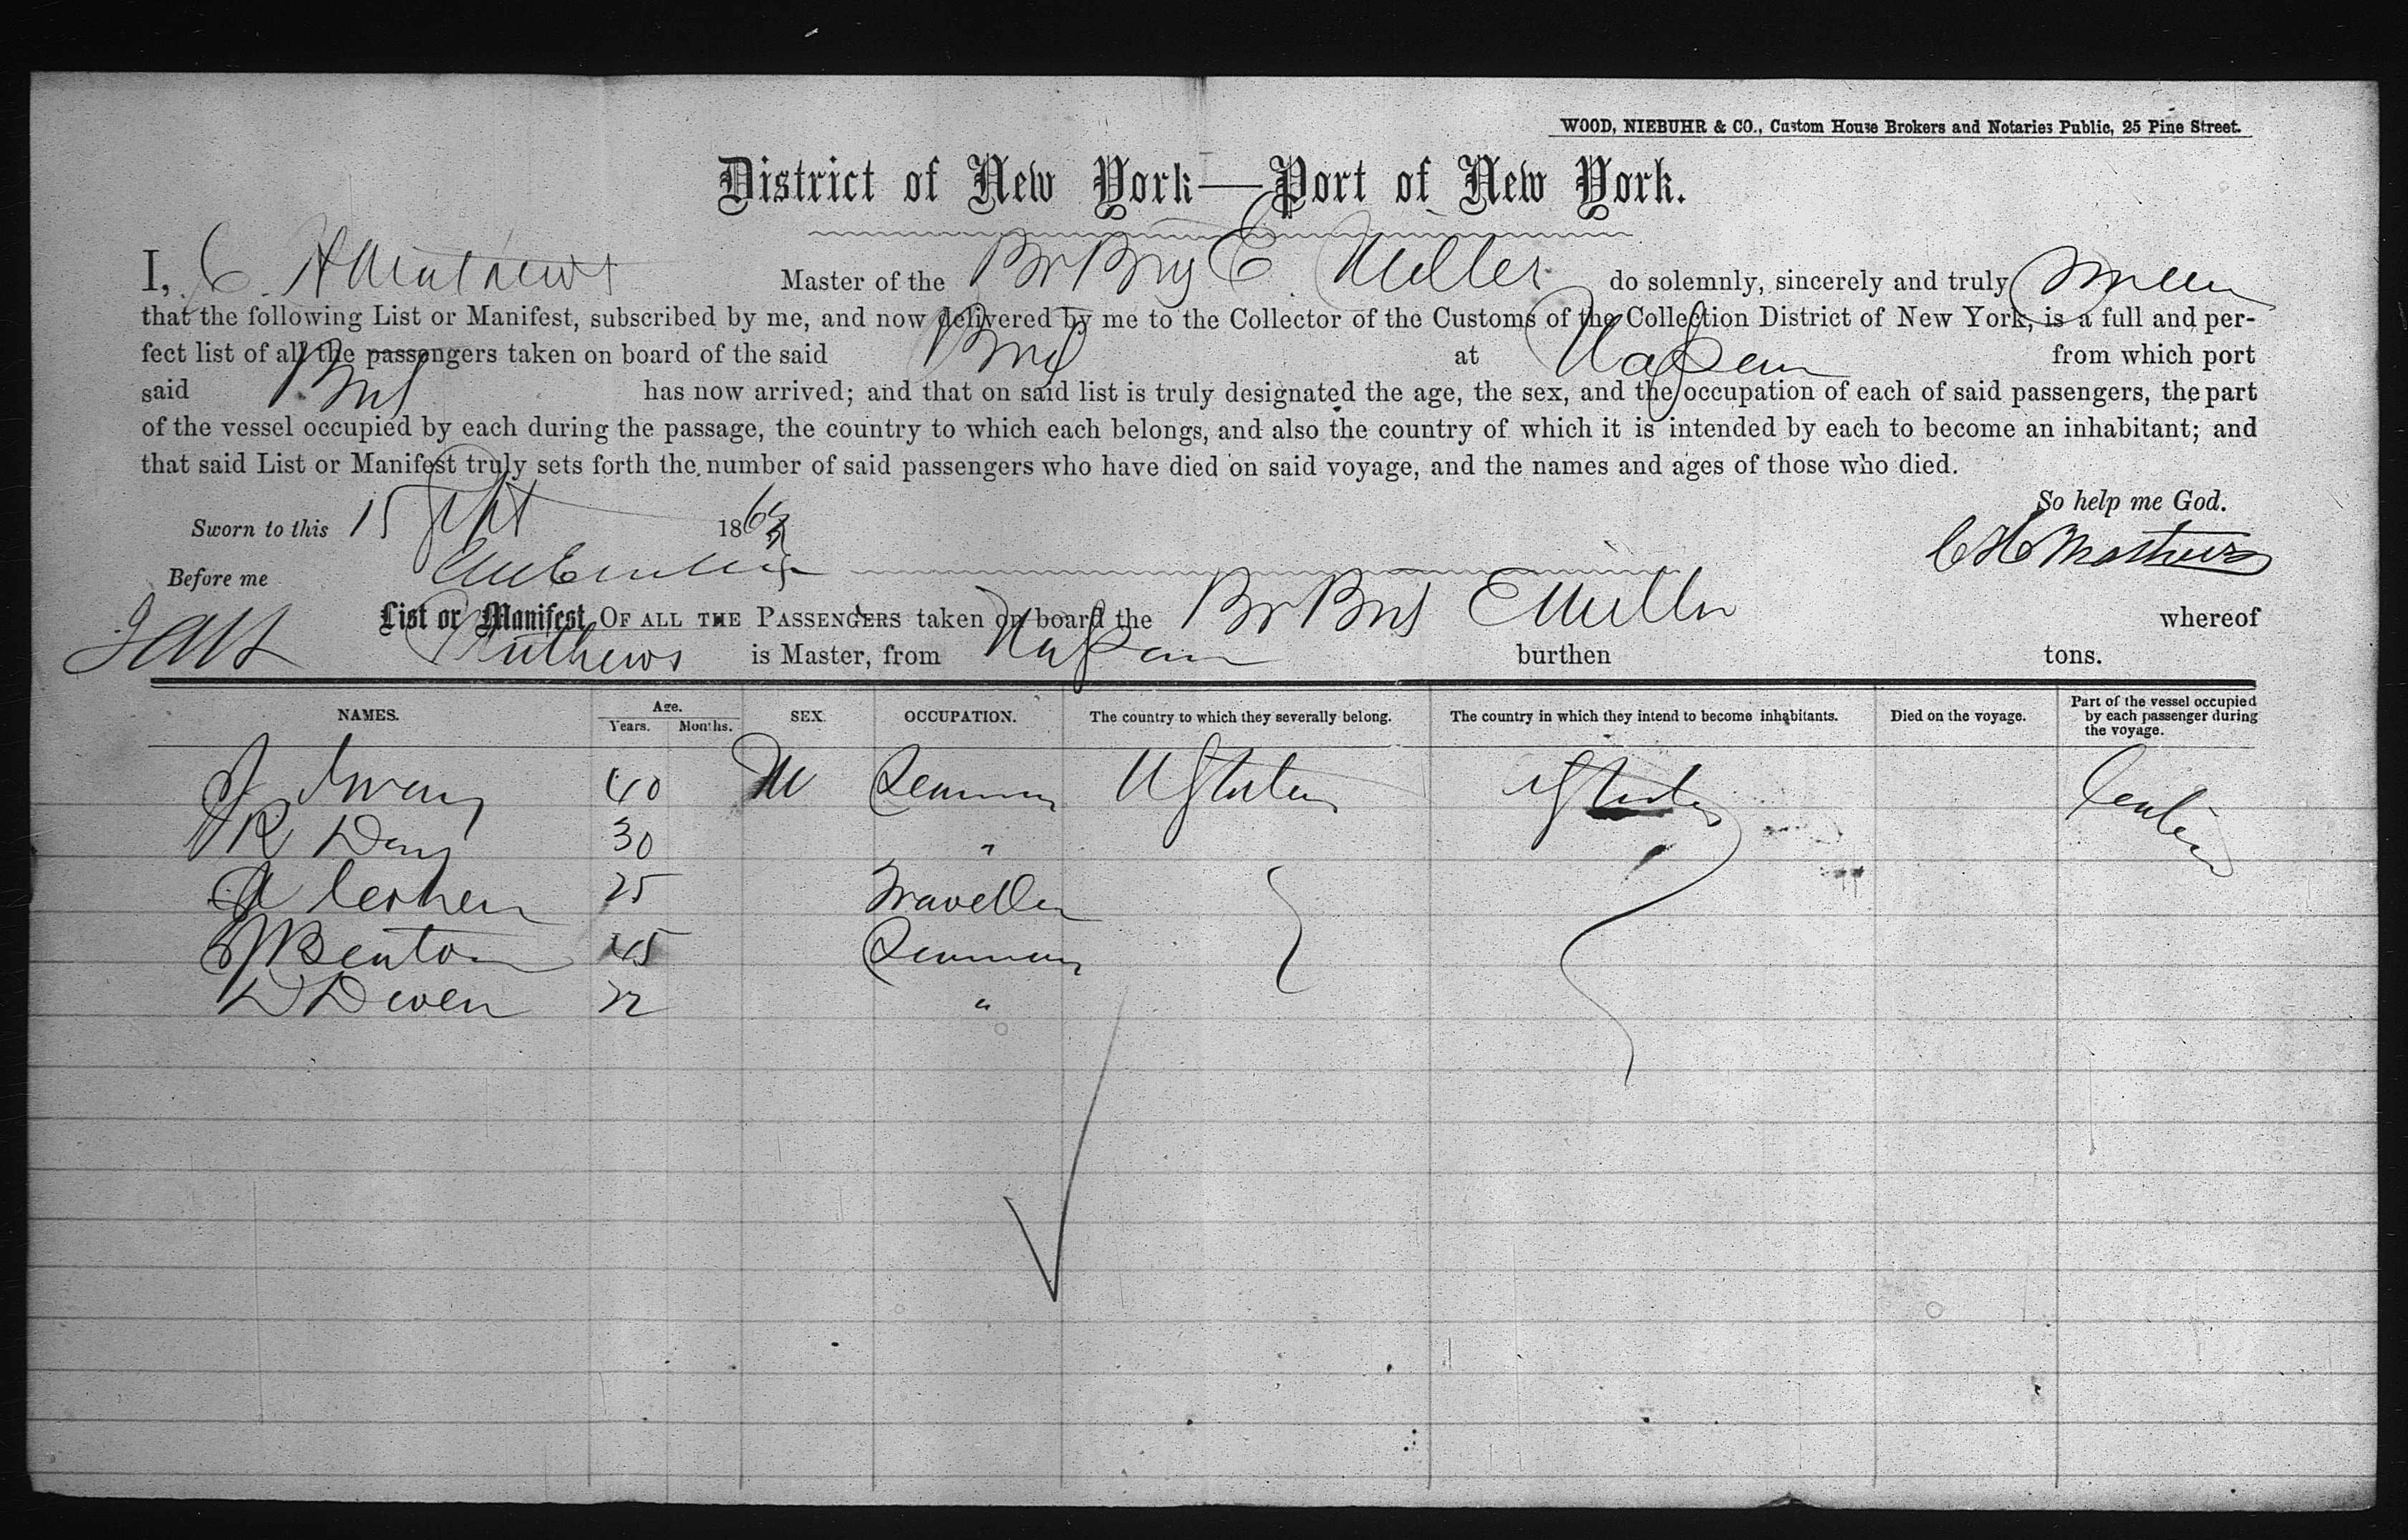 WOOD, NIEBUHR & CO., Custom House Brokers and Notaries Public, 25 Pine Street.
District of New York—Port of New York.
I, C H Mathews Master of the Br Brig E. Miller do solemnly, sincerely and truly swear
that the following List or Manifest, subscribed by me, and now delivered by me to the Collector of the Customs of the Collection District of New York, is a full and per-
fect list of all the passengers taken on board of the said Brig at Nassau from which port
said Brig has now arrived; and that on said list is truly designated the age, the sex, and the occupation of each of said passengers, the part
of the vessel occupied by each during the passage, the country to which each belongs, and also the country of which it is intended by each to become an inhabitant; and
that said List or Manifest truly sets forth the number of said passengers who have died on said voyage, and the names and ages of those who died.
So help me God.
Sworn to this 15 Sept 186
C H Mathews
Before me
List or Manifest OF ALL THE PASSENGERS taken on board the Br Brig E Miller whereof
Mathews is Master, from Nassau burthen tons.
NAMES. Age. Years. Months. SEX. OCCUPATION. The country to which they severally belong. The country in which they intend to become inhabitants. Died on the voyage. Part of the vessel occupied by each passenger during the voyage.
40 M Seaman U States U States Cabin
R Day 30 "
25 Traveller
Benton 45 Seaman
D Dewen 22 "